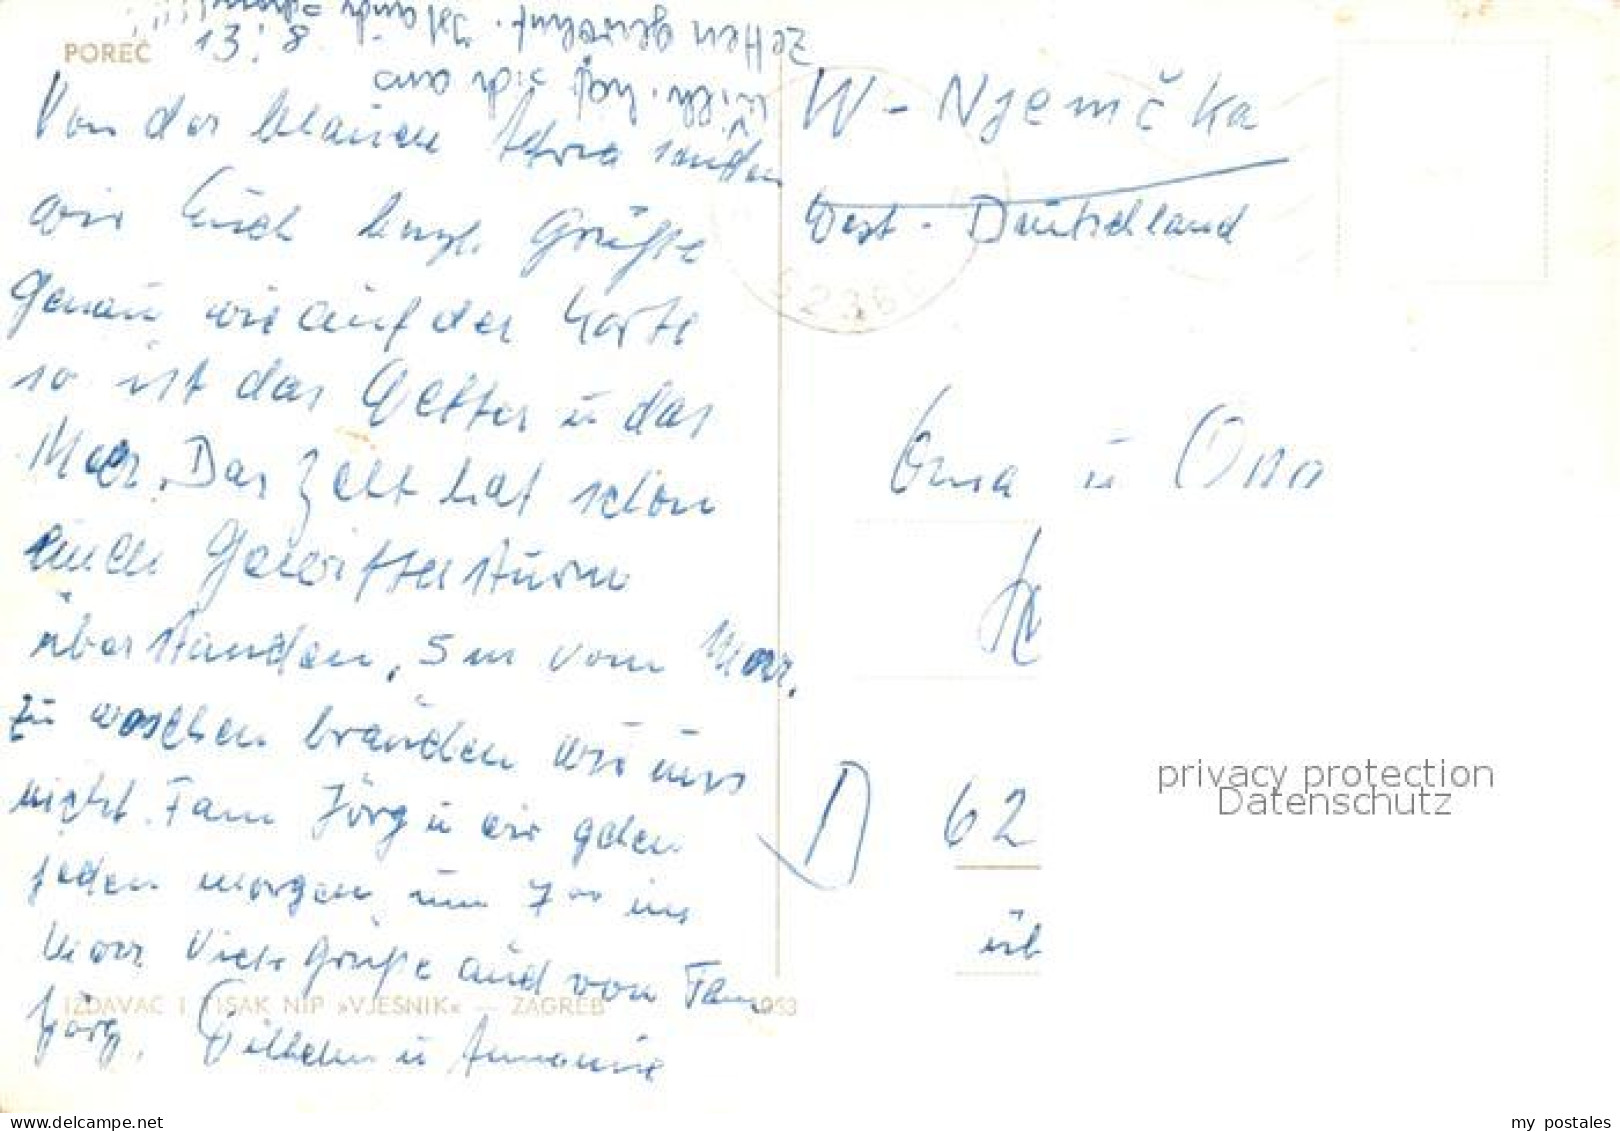 POREČ
13.8.
Von der blauen Adria senden
wir Euch herzl. Grüße
Genau wie auf der Karte
so ist das Wetter u das
Meer. Das Zelt hat schon
einen Gewittersturm
überstanden, 5 m vom Meer.
Zu waschen brauchen wir uns
nicht. Fam Jörg u wir gehen
jeden morgen um 7⁰⁰ ins
Meer Viele Grüße auch von Fam
Jörg. Wilhelm u Annemie
Wilh. hat sich ans
Zelten gewöhnt. Ist auch schön!!!!
IZDAVAČ I TISAK NIP »VJESNIK« — ZAGREB
953
W-Njemčka
West-Deutschland
Oma u Opa
D 62
üb
privacy protection
Datenschutz
my postales